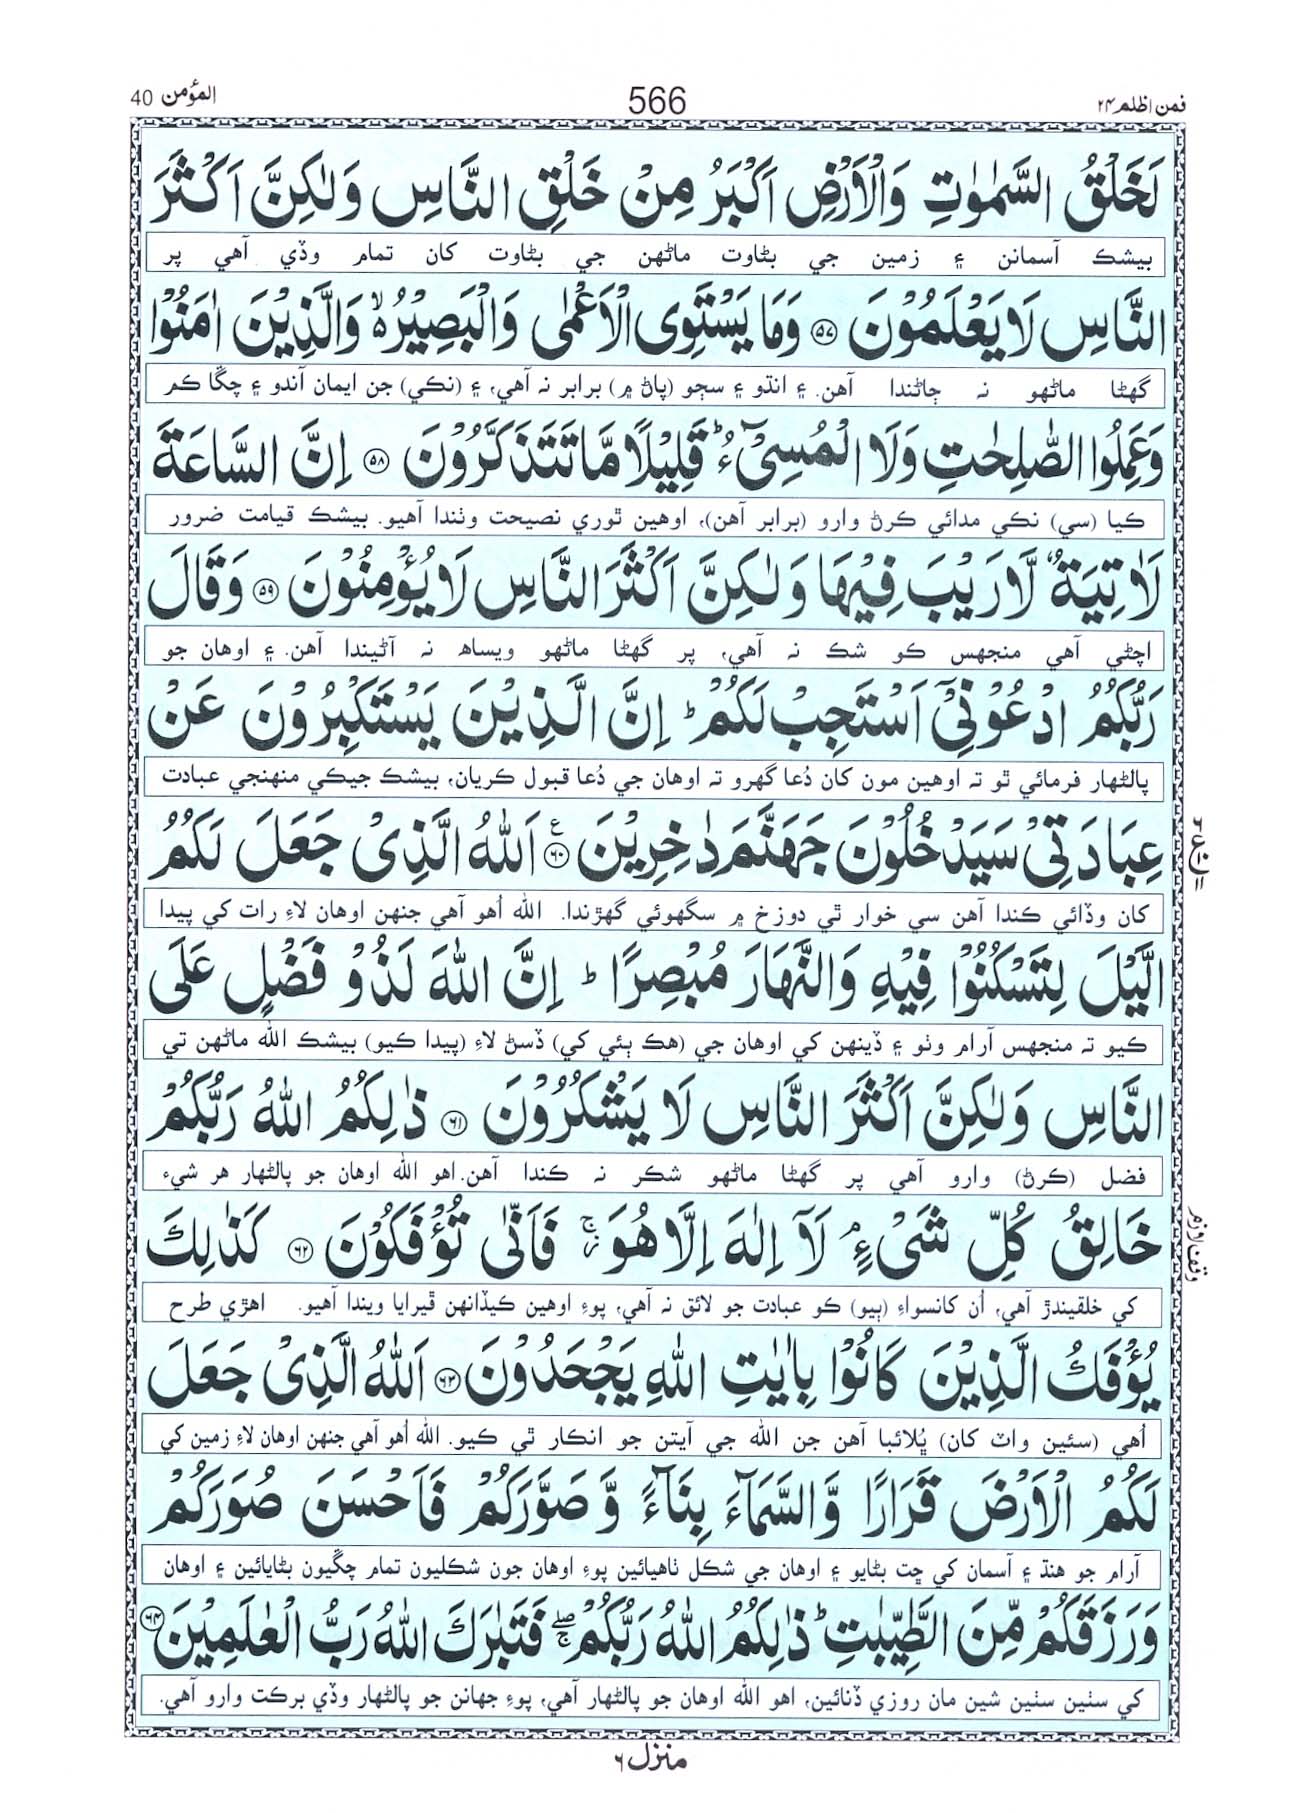 المؤمن 40
566
فمن اظلم ۲۴
لَخَلْقُ السَّمٰوٰتِ وَالْاَرْضِ اَكْبَرُ مِنْ خَلْقِ النَّاسِ وَلٰكِنَّ اَكْثَرَ
بيشڪ آسمانن ۽ زمين جي بڻاوت ماڻهن جي بڻاوت کان تمام وڏي آهي پر
النَّاسِ لَا يَعْلَمُوْنَ ﴿۵۷﴾ وَمَا يَسْتَوِى الْاَعْمٰى وَالْبَصِيْرُ ۙ۬ وَالَّذِيْنَ اٰمَنُوْا
گهڻا ماڻهو نہ ڄاڻندا آهن. ۽ انڌو ۽ سڄو (پاڻ ۾) برابر نہ آهي، ۽ (نڪي) جن ايمان آندو ۽ چڱا ڪم
وَعَمِلُوا الصّٰلِحٰتِ وَلَا الْمُسِىْٓءُ ؕ قَلِيْلًا مَّا تَتَذَكَّرُوْنَ ﴿۵۸﴾ اِنَّ السَّاعَةَ
ڪيا (سي) نڪي مدائي ڪرڻ وارو (برابر آهن)، اوهين ٿوري نصيحت وٺندا آهيو. بيشڪ قيامت ضرور
لَاٰتِيَةٌ لَّا رَيْبَ فِيْهَا وَلٰكِنَّ اَكْثَرَ النَّاسِ لَا يُؤْمِنُوْنَ ﴿۵۹﴾ وَقَالَ
اچڻي آهي منجهس ڪو شڪ نہ آهي، پر گهڻا ماڻهو ويساھ نہ آڻيندا آهن. ۽ اوهان جو
رَبُّكُمُ ادْعُوْنِىْٓ اَسْتَجِبْ لَكُمْ ؕ اِنَّ الَّذِيْنَ يَسْتَكْبِرُوْنَ عَنْ
پالڻهار فرمائي ٿو تہ اوهين مون کان دُعا گهرو تہ اوهان جي دُعا قبول ڪريان، بيشڪ جيڪي منهنجي عبادت
عِبَادَتِىْ سَيَدْخُلُوْنَ جَهَنَّمَ دٰخِرِيْنَ ﴿۶۰﴾ اَللّٰهُ الَّذِىْ جَعَلَ لَكُمُ
کان وڏائي ڪندا آهن سي خوار ٿي دوزخ ۾ سگهوئي گهڙندا. الله اُهو آهي جنهن اوهان لاءِ رات کي پيدا
الَّيْلَ لِتَسْكُنُوْا فِيْهِ وَالنَّهَارَ مُبْصِرًا ؕ اِنَّ اللّٰهَ لَذُوْ فَضْلٍ عَلَى
ڪيو تہ منجهس آرام وٺو ۽ ڏينهن کي اوهان جي (هڪ ٻئي کي) ڏسڻ لاءِ (پيدا ڪيو) بيشڪ الله ماڻهن تي
النَّاسِ وَلٰكِنَّ اَكْثَرَ النَّاسِ لَا يَشْكُرُوْنَ ﴿۶۱﴾ ذٰلِكُمُ اللّٰهُ رَبُّكُمْ
فضل (ڪرڻ) وارو آهي پر گهڻا ماڻهو شڪر نہ ڪندا آهن. اهو الله اوهان جو پالڻهار هر شيء
خَالِقُ كُلِّ شَىْءٍ ۘ لَاۤ اِلٰهَ اِلَّا هُوَ ۚ فَاَنّٰى تُؤْفَكُوْنَ ﴿۶۲﴾ كَذٰلِكَ
وقف لازم
کي خلقيندڙ آهي، اُن کانسواءِ (ٻيو) ڪو عبادت جو لائق نہ آهي، پوءِ اوهين ڪيڏانهن ڦيرايا ويندا آهيو. اهڙي طرح
يُؤْفَكُ الَّذِيْنَ كَانُوْا بِاٰيٰتِ اللّٰهِ يَجْحَدُوْنَ ﴿۶۳﴾ اَللّٰهُ الَّذِىْ جَعَلَ
اُهي (سئين واٽ کان) ڀُلائبا آهن جن الله جي آيتن جو انڪار ٿي ڪيو. الله اُهو آهي جنهن اوهان لاءِ زمين کي
لَكُمُ الْاَرْضَ قَرَارًا وَّالسَّمَآءَ بِنَآءً وَّصَوَّرَكُمْ فَاَحْسَنَ صُوَرَكُمْ
آرام جو هنڌ ۽ آسمان کي ڇت بڻايو ۽ اوهان جي شڪل ٺاهيائين پوءِ اوهان جون شڪليون تمام چڱيون بڻايائين ۽ اوهان
وَرَزَقَكُمْ مِّنَ الطَّيِّبٰتِ ؕ ذٰلِكُمُ اللّٰهُ رَبُّكُمْ ۖۚ فَتَبٰرَكَ اللّٰهُ رَبُّ الْعٰلَمِيْنَ ﴿۶۴﴾
کي سٺين سٺين شين مان روزي ڏنائين، اهو الله اوهان جو پالڻهار آهي، پوءِ جهانن جو پالڻهار وڏي برڪت وارو آهي.
منزل ۶